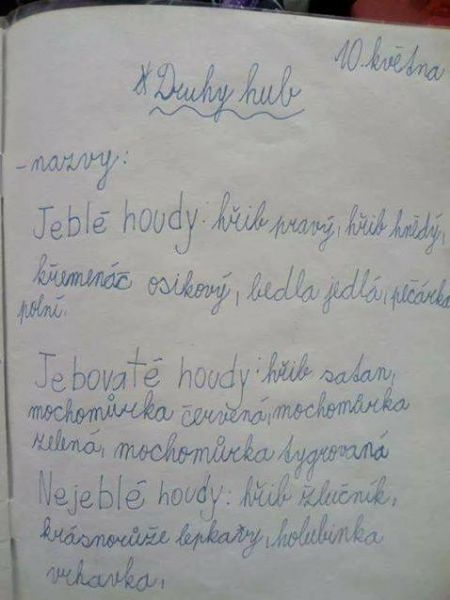 10. května
*Druhy hub
- nazvy:
Jeblé houdy: hřib pravý, hřib hnědý,
křemenáč osikový, bedla jedlá, pěčárka
polní.
Jebovaté houdy: hřib satan,
mochomůrka červená, mochomůrka
zelená, mochomůrka tygrovaná
Nejeblé houdy: hřib žlučník,
krásnorůže lepkavy, holubinka
vrhavka,